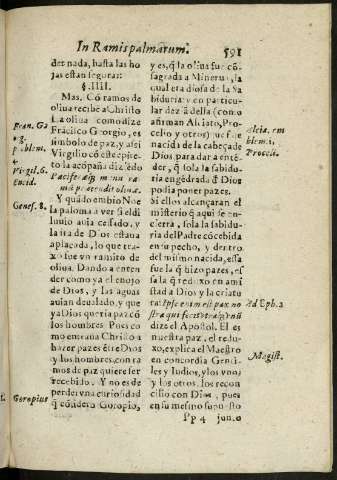 In Ramis palmarum. 591
der nada, hasta las ho
jas estan seguras:
§. IIII.
Mas. Cõ ramos de
oliua recibe a Christo
La oliua como dize
Frãcisco Georgio, es
simbolo de paz, y assi
Virgilio cõ este epite
to la acõpaña diziẽdo
ramis prætendit oliuæ.
Y quãdo embio Noe
la paloma a ver si el di
luuio auia cessado, y
la ira de Dios estaua
aplacada, lo que tra
xo fue vn ramito de
oliua. Dando a enten
der como ya el enojo
de Dios, y las aguas
auian deualado, y que
ya Dios queria paz cõ
los hombres. Pues co
mo entraua Christo a
hazer pazes ẽtre Dios
y los hombres, con ra
mos de paz quiere ser
recebido. Y no es de
perder vna curiosidad
q̃ cõsidero Goropio,
Fran. Ga
g.
problem.
4
Virgil. 6.
Eneid.
Genes. 8.
Goropius
y es, q̃ la oliua fue cõ
sagrada a Minerua, la
qual era diosa de la Sa
biduria: y en particu
lar dezia della (como
afirman Alciato, Pro
celio y otros) que fue
nacida de la cabeça de
Dios para dar a entẽ
der, q̃ sola la sabidu
ria engẽdrada d̃ Dios
podia poner pazes.
Si ellos alcançaran el
misterio q̃ aqui se en-
cierra, sola la sabidu-
ria del Padre cõcebida
en su pecho, y dentro
del mismo nacida, essa
fue la q̃ hizo pazes, es
sa la q̃ reduxo en amis
tad a Dios y la criatu
ra: Ipse enim est pax no
stra qui fecit vtraq; vnũ
dize el Apostol. El es
nuestra paz, el redu-
xo, explica el Maestro
en concordia Genti-
les y Iudios, y los vnos
y los otros, los recon
cilio con Dios, pues
en su mesmo supuesto
Alcia. em
blem. 1.
Proceli.
Ad Eph. 2
Magist.
Pp 4 junto